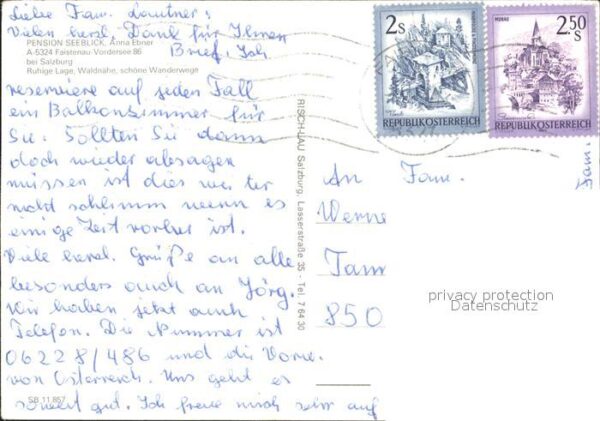 Liebe Fam. Lautner!
Vielen herzl. Dank für Ihnen
PENSION SEEBLICK, Anna Ebner
A-5324 Faistenau-Vordersee 86
bei Salzburg
Ruhige Lage, Waldnähe, schöne Wanderwege
Brief. Ich
reserviere auf jeden Fall
ein Balkonzimmer für
Sie. Sollten Sie dann
doch wieder absagen
müssen ist dies wei ter
nicht schlimm wenn es
einige Zeit vorher ist.
Viele herzl. Grüße an alle
besonders auch an Jörg.
Wir haben jetzt auch
Telefon. Die Nummer ist
06228/486 und die Vorw.
von Österreich. Uns geht es
soweit gut. Ich freue mich sehr auf
SB 11.857
RISCH-LAU Salzburg, Lasserstraße 35 - Tel. 7 64 30
2 S
REPUBLIK ÖSTERREICH
MURAU
2.50 S
REPUBLIK ÖSTERREICH
An Fam.
Werne
Tann
850
Fam.
privacy protection
Datenschutz